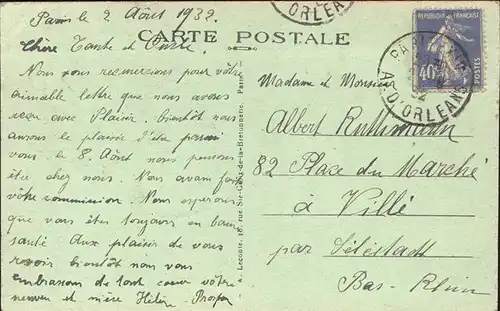 Paris le 2 Août 1932.
CARTE POSTALE
Chère Tante et Oncle
Nous vous remercions pour votre
aimable lettre que nous avons
reçu avec Plaisir. Bientôt nous
aurons le plaisir d'être parmi
vous le 8. Août nous pensons
être chez nous. Nous avons fait
vôtre commission. Nous esperons
que vous êtes toujours en bonne
santé. Aux plaisir de vous
revoir bientôt nous vous
embrassons de tout cœur vôtre
neveu et nièce Hélène. Prosper
A. Leconte, 18, rue Ste-Croix-de-la-Bretonnerie, Paris
ORLEANS
REPUBLIQUE FRANÇAISE
40c
POSTES
PARIS
AV. D'ORLEANS
Madame et Monsieur
Albert Ruthmann
82 Place du Marché
à Villé
par Sélestadt
Bas-Rhin